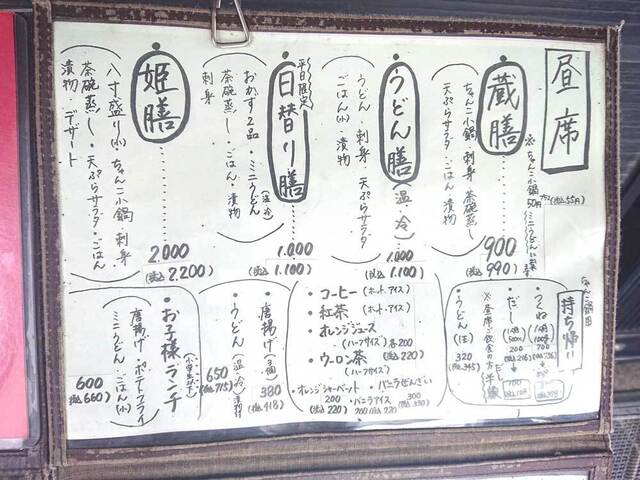 昼席
蔵膳
900
(税込 990)
ちゃんこ小鍋・刺身・茶碗蒸し
天ぷらサラダ・ごはん・漬物
うどん膳(温・冷)
1.000
(税込 1.100)
うどん・刺身・天ぷらサラダ
ごはん(小)・漬物
平日限定
日替り膳
1.000
(税込 1.100)
おかず2品・ミニうどん(温・冷)
茶碗蒸し・ごはん・漬物
刺身
姫膳
2.000
(税込 2.200)
八寸盛り(小)・ちゃんこ小鍋・刺身
茶碗蒸し・天ぷらサラダ・ごはん
漬物・デザート
ちゃんこ鍋用
持ち帰り
・つくね
・だし
・うどん(玉)
320
・コーヒー(ホット・アイス)
・紅茶(ホット・アイス)
・オレンジジュース
(ハーフサイズ)各200
・ウーロン茶 (税込220)
(ハーフサイズ)
・オレンジシャーベット
200
(税込220)
・バニラアイス
200 (税込220)
・バニラぜんざい
300
(税込330)
・唐揚げ(3個)
380
(税込418)
・うどん(温・冷)漬物付
650
(税込715)
・お子様ランチ
唐揚げ・ポテトフライ
ミニうどん・ごはん(小)
600
(税込660)